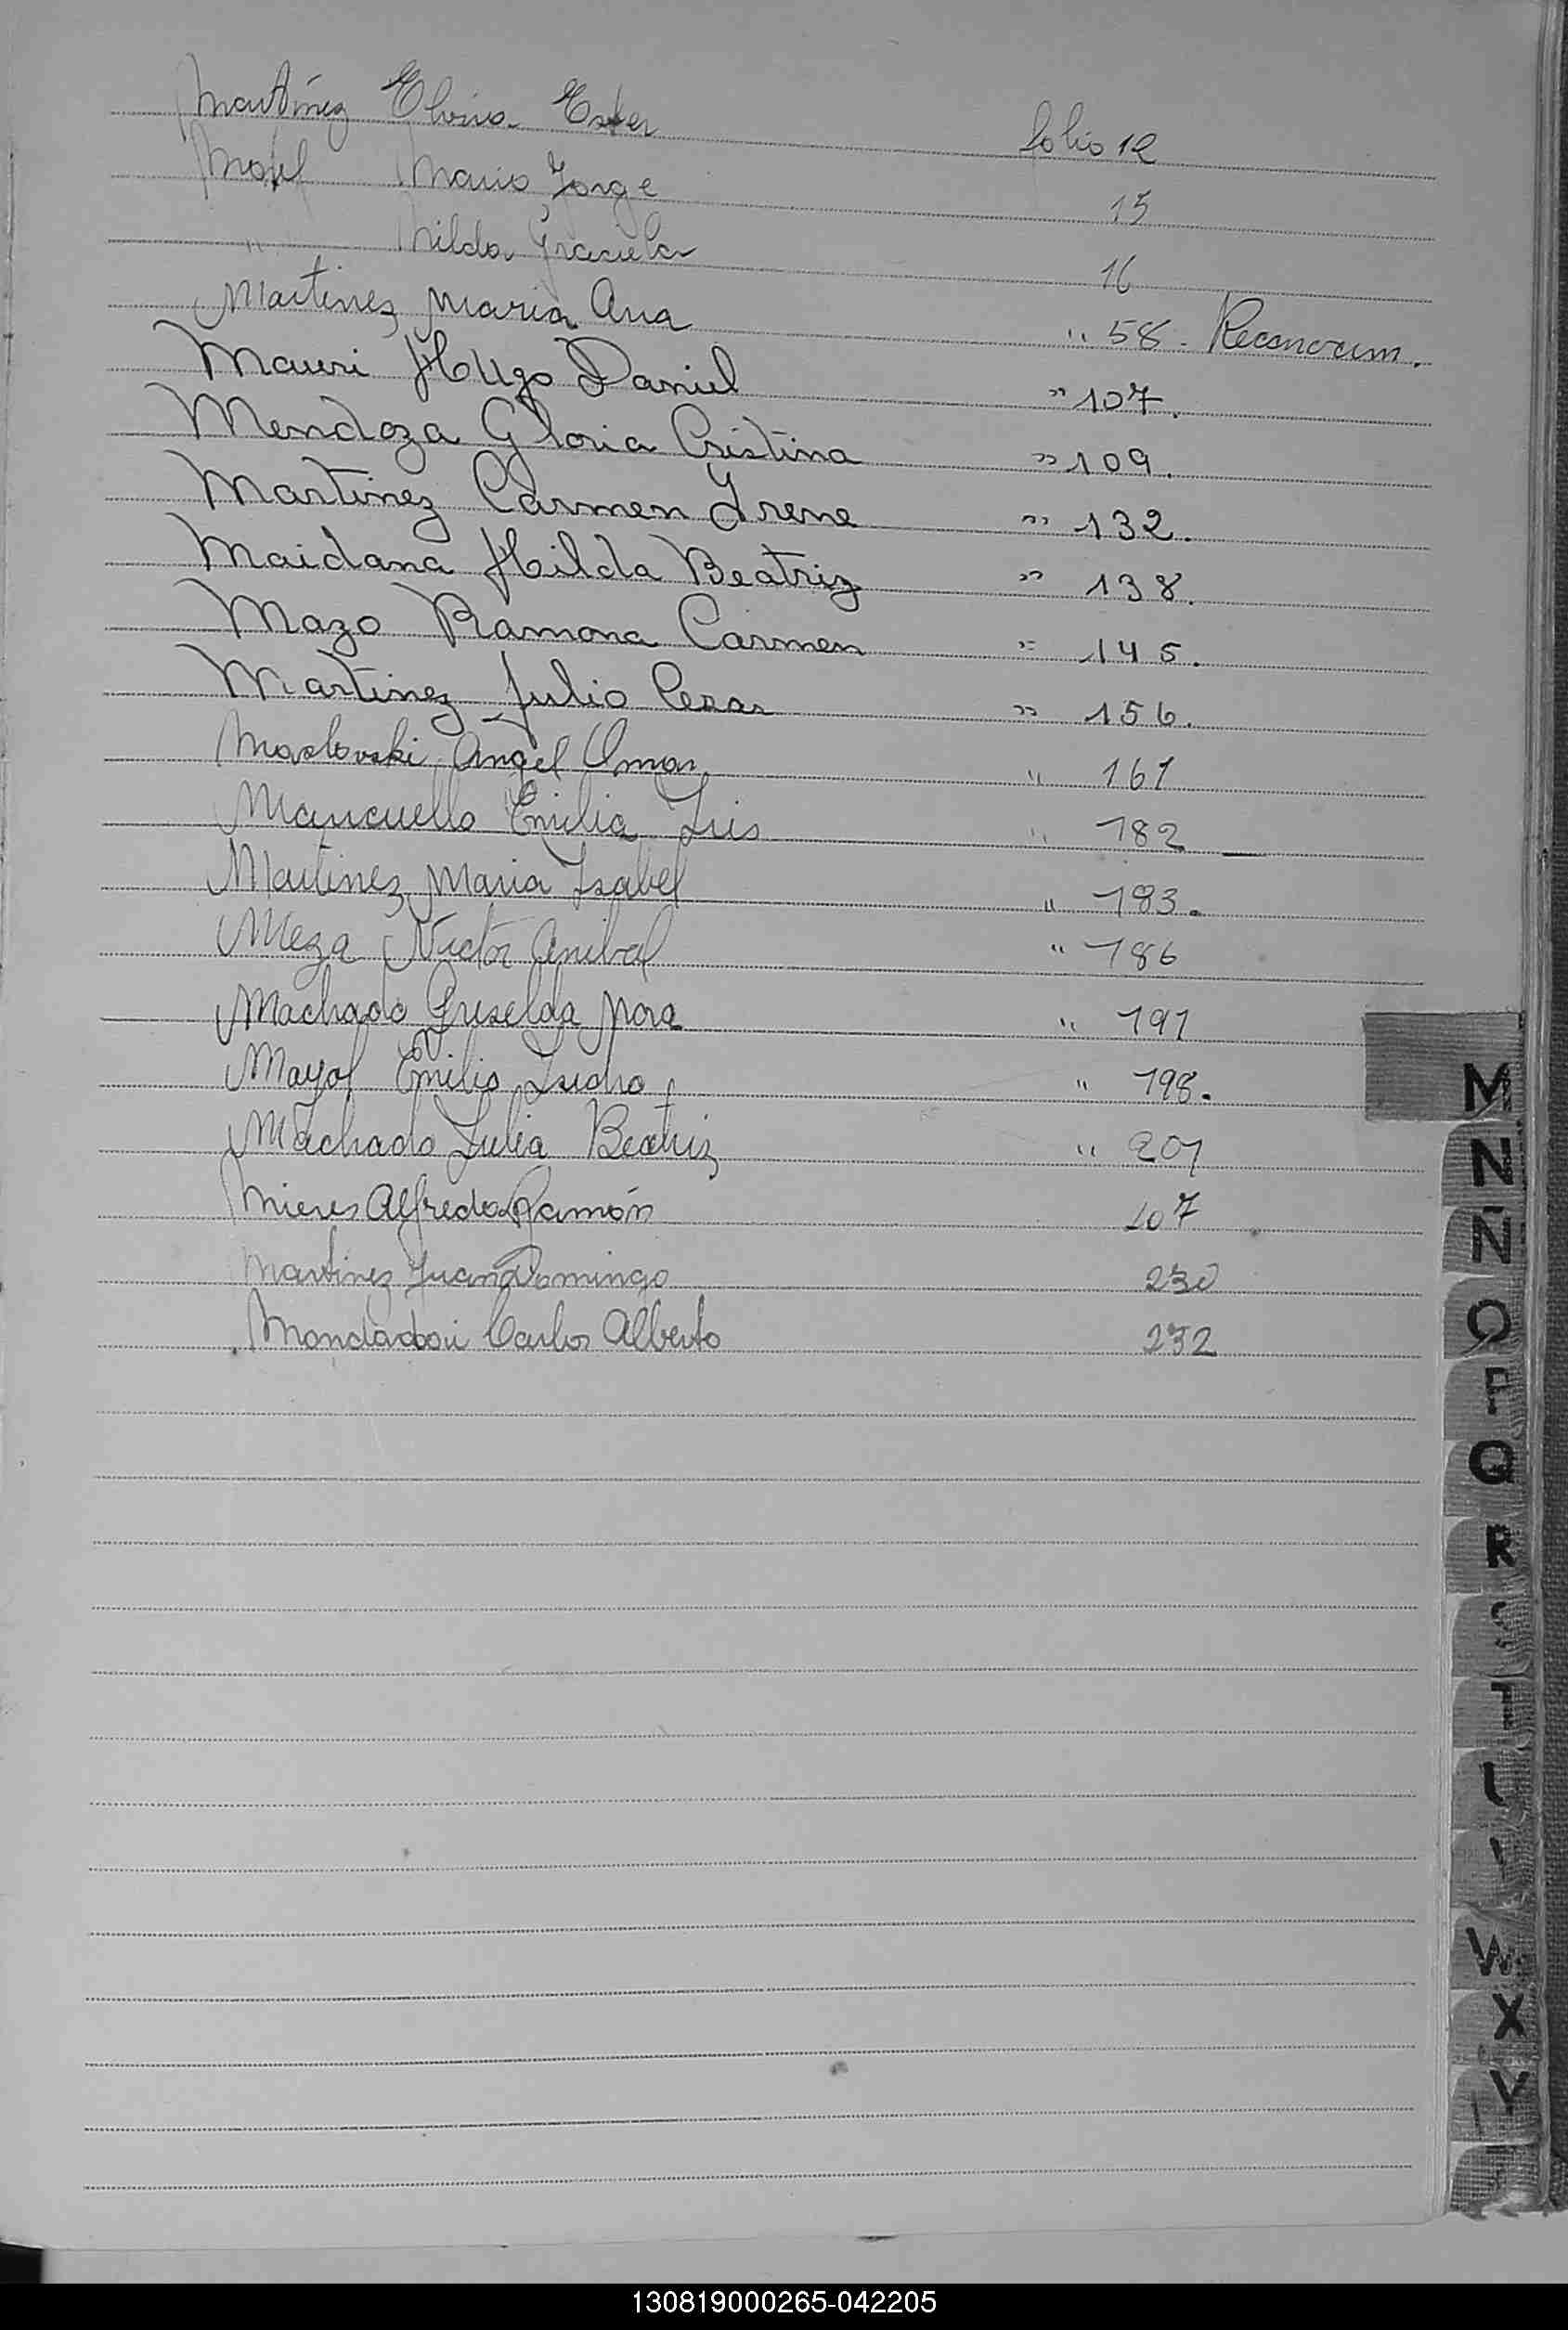 Martínez Elvira Ester folio 12
Mario Jorge 15
" Nilda Graciela 16
Martinez Maria Ana " 58. Reconocim.
Mauri Hugo Daniel " 107.
Mendoza Gloria Cristina " 109.
Martinez Carmen Irene " 132.
Maidana Hilda Beatriz " 138.
Mazo Ramona Carmen " 145.
Martinez Julio Cesar " 156.
Maslovski Angel Omar " 161
Mancuello Emilia Luis " 182
Martinez Maria Isabel " 183.
Meza Victor Anibal " 186
Machado Griselda Nora " 191
Mayol Emilio Isidro " 198.
Machado Julia Beatriz " 201
Mieres Alfredo Ramón 207
Martinez Juan Domingo 230
Mondadori Carlos Alberto 232
M
N
Ñ
O
P
Q
R
S
T
W
X
Y
130819000265-042205